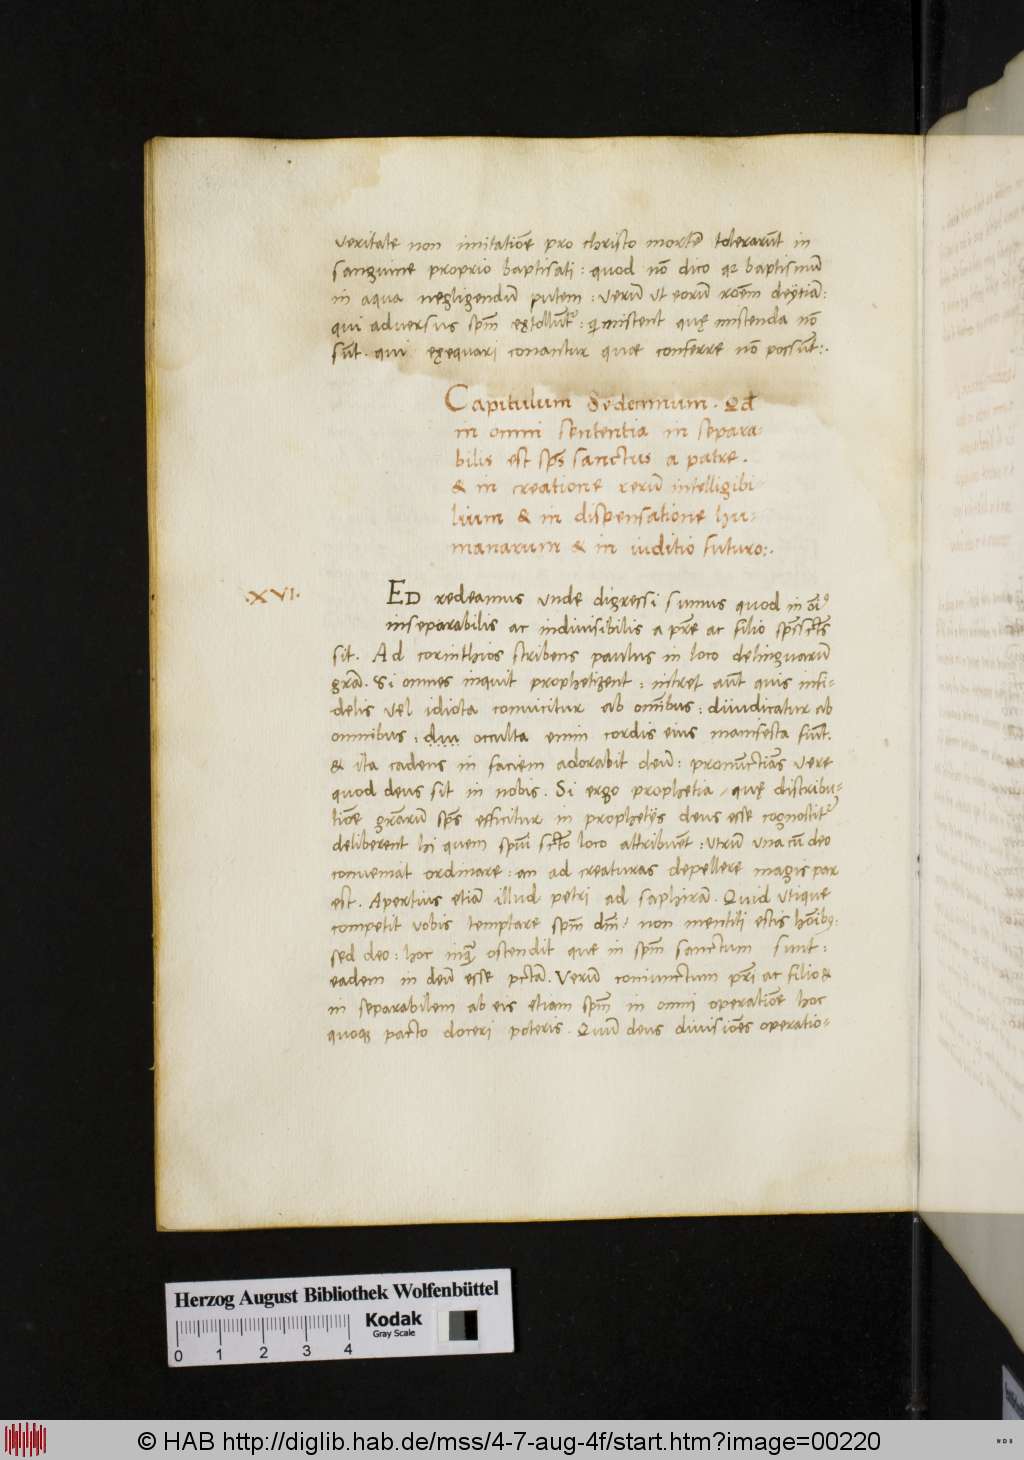 veritate non imitatiōe pro christo mortē tolerarūt in
sanguine proprio baptisati : quod nō dico qꝫ baptismū
in aqua negligendū putem : verū ut eorū roēm deijtiā :
qui adversus spm̄ extollūtʳ : qͥ miscent quę miscenda nō
sūt . qui exequari conantur quae conferre nō possūt :.
Capitulum Sedecimum . Qđ
in omni sententia in separa-
bilis est sps̄ sanctus a patre .
& in creatione rerū intelligibi-
lium & in dispensatione hu-
manarum & in iuditio futuro :.
.XVI.
ED redeamus unde digressi sumus quod in oīꝰ
inseparabilis ac indivisibilis a pr̄e ac filio sps̄ sct̄s
sit . Ad corinthios scribens paulus in loco delinguarū
grā . Si omnes inquit prophetizent : intret aūt quis infi-
delis vel idiota convicitur ab omībus : diiudicatur ab
omnibus : diu occulta enim cordis eius manifesta fiūt .
& ita cadens in faciem adorabit deū : pronūctiās vere
quod deus sit in nobis . Si ergo prophetia , quę distribu-
tiōe grārū sps̄ efficitur in prophetijs deus esse cognoscitʳ
deliberent hi quem spiūi sct̄o loco attribuēt : utrū una cū deo
conveniat ordinare : an ad creaturas depellere magis par
est . Apertius etiā illud petri ad saphirā . Quid utique
competit vobis temptare spm̄ dm̄ ? non mentiti estis hoībꝫ
sed deo : hoc inqͣ ostendit que in spm̄ sanctum sunt :
eadem in deū esse pctā . Verū coniunctum pr̄i ac filio &
in separabilem ab eis etiam spm̄ in omni operatiōe hoc
quoqꝫ pacto doceri poteris . Quū deus divisiōes operatio-
Herzog August Bibliothek Wolfenbüttel
Kodak
Gray Scale
0 1 2 3 4
© HAB http://diglib.hab.de/mss/4-7-aug-4f/start.htm?image=00220